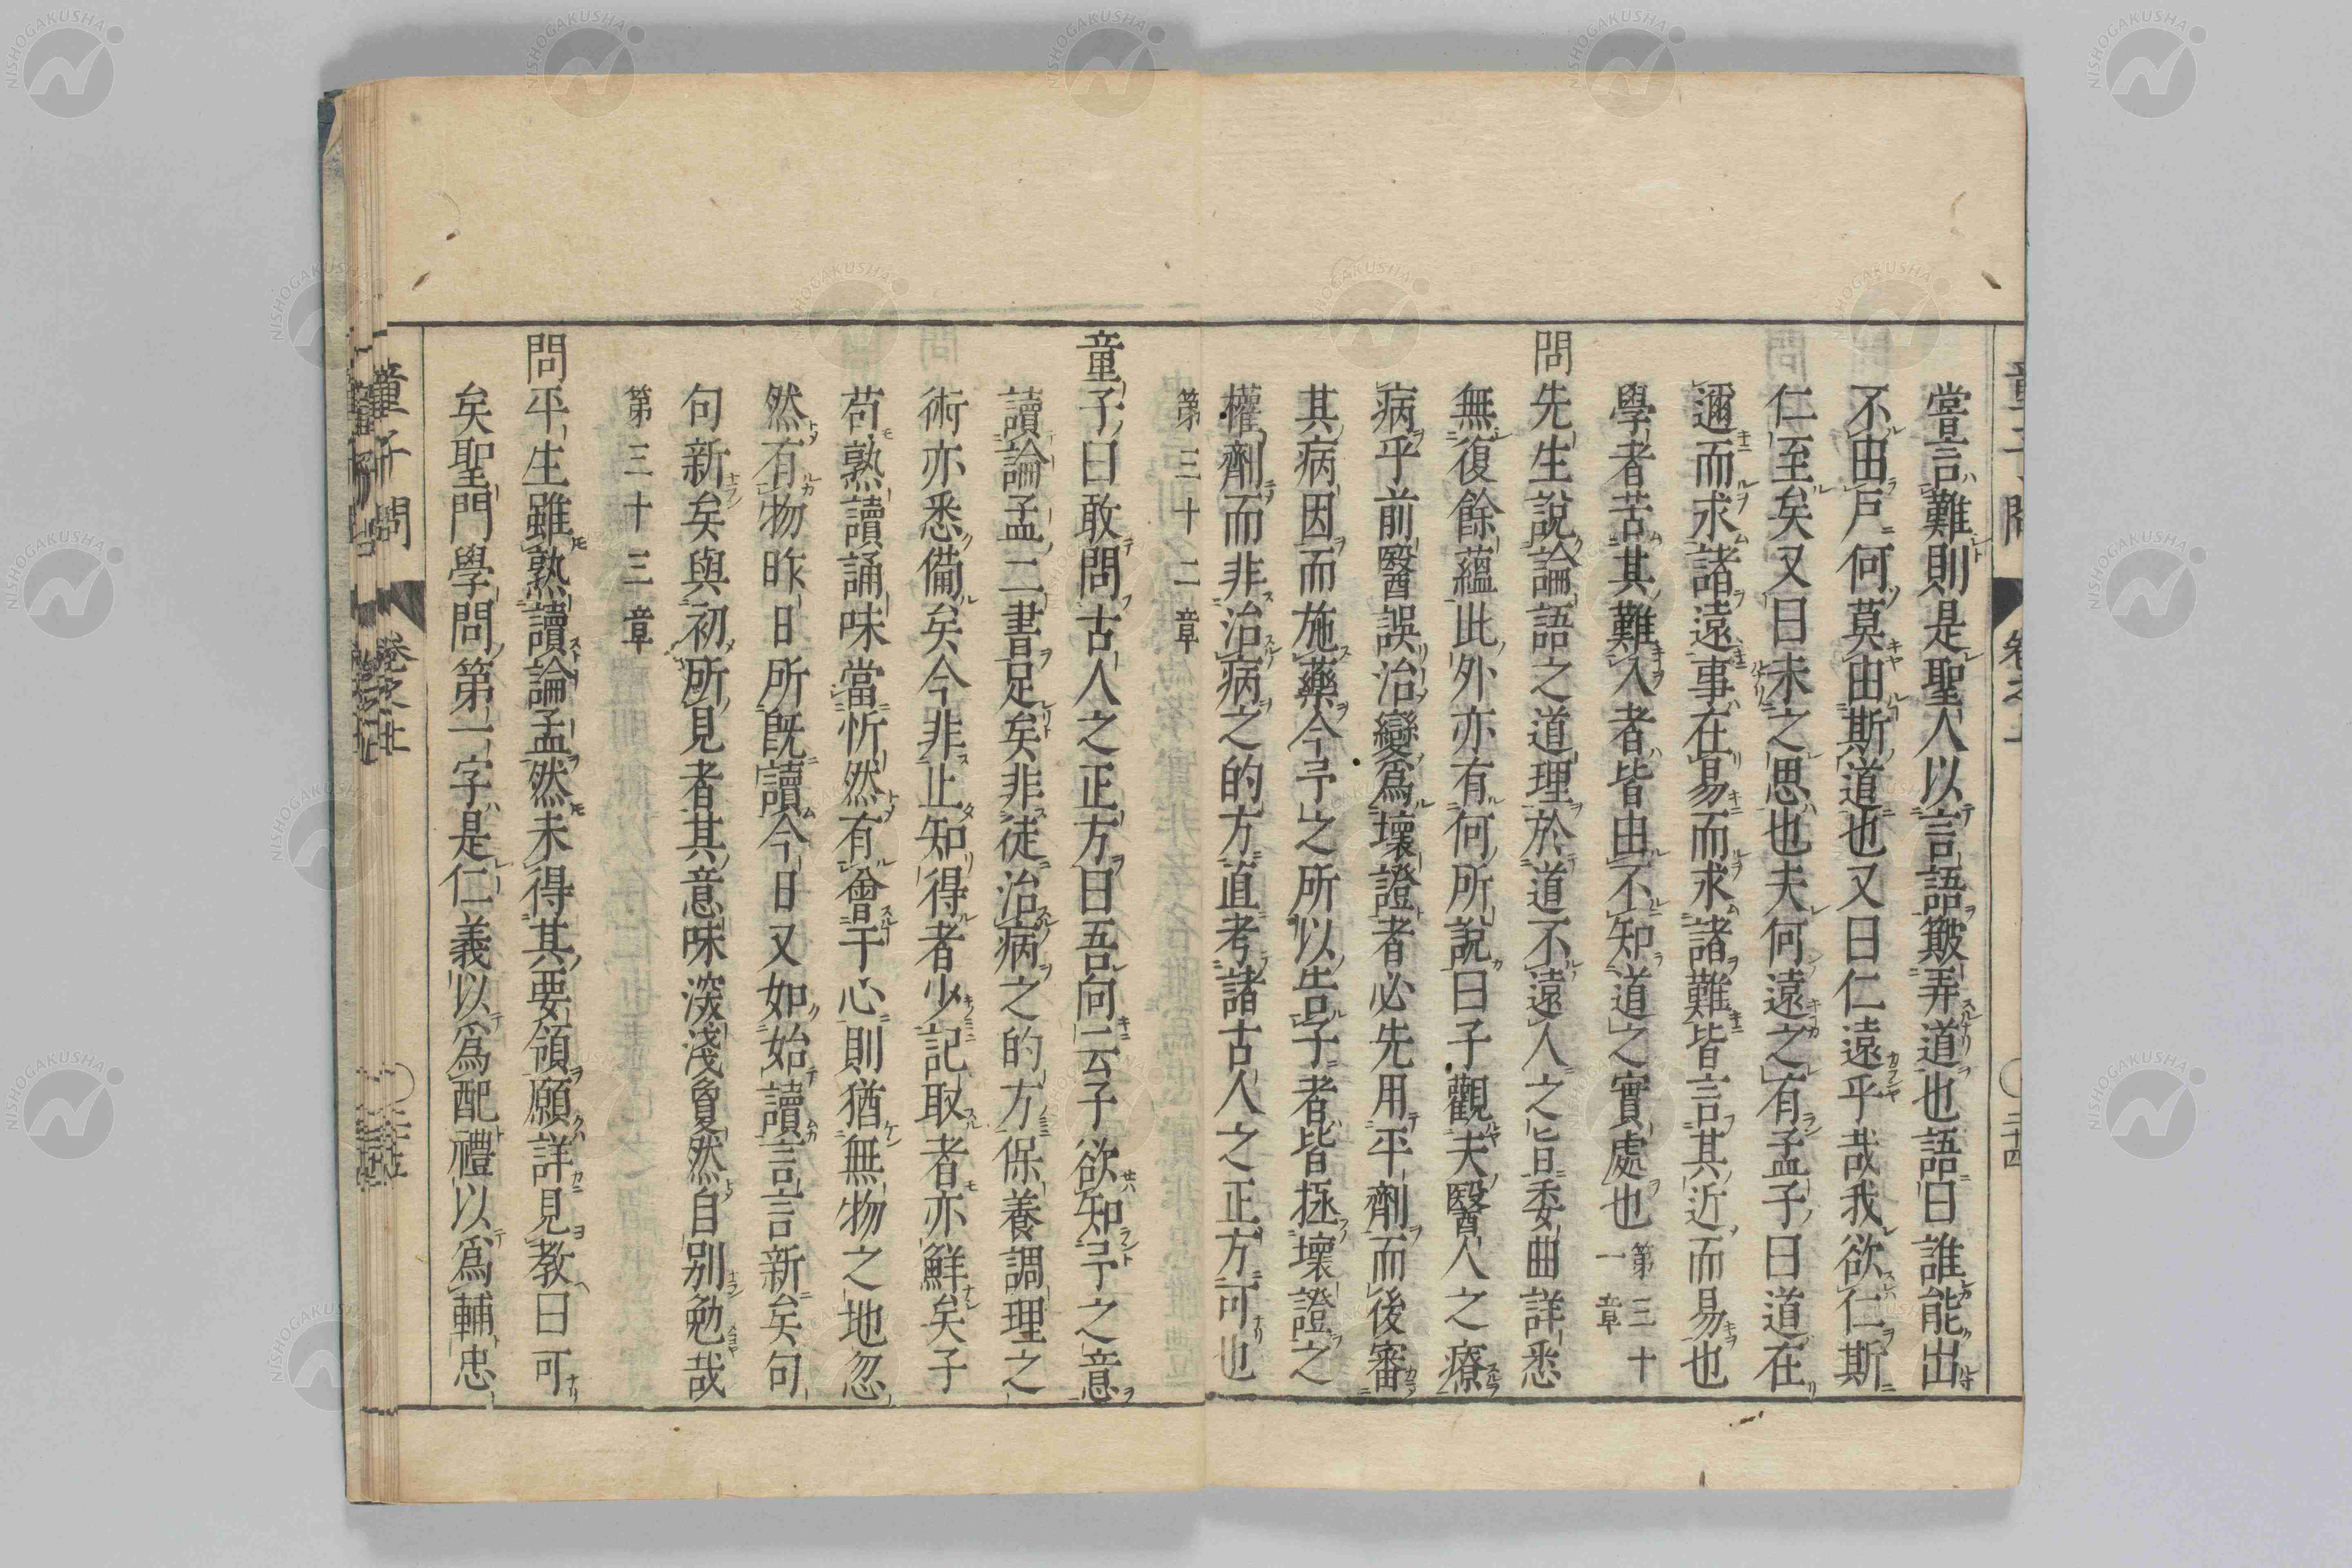 嘗言難則是聖人以言語簸弄道也語曰誰能出
不由戶何莫由斯道也又曰仁遠乎哉我欲仁斯
仁至矣又曰未之思也夫何遠之有孟子曰道在
邇而求諸遠事在易而求諸難皆言其近而易也
學者苦其難入者皆由不知道之實處也 第三十一章
問先生說論語之道理於道不遠人之旨委曲詳悉
無復餘蘊此外亦有何所說曰子觀夫醫人之療
病乎前醫誤治變爲壞證者必先用平劑而後審
其病因而施藥今予之所以告子者皆拯壞證之
權劑而非治病之的方直考諸古人之正方可也
第三十二章
童子曰敢問古人之正方曰吾向云子欲知予之意
讀論孟二書足矣非徒治病之的方保養調理之
術亦悉備矣今非止知得者少記取者亦鮮矣子
苟熟讀誦味當忻然有會于心則猶無物之地忽
然有物昨日所既讀今日又如始讀言言新矣句
句新矣與初所見者其意味深淺敻然自別勉哉
第三十三章
問平生雖熟讀論孟然未得其要領願詳見教曰可
矣聖門學問第一字是仁義以爲配禮以爲輔忠
童子問
NISHOGAKUSHA